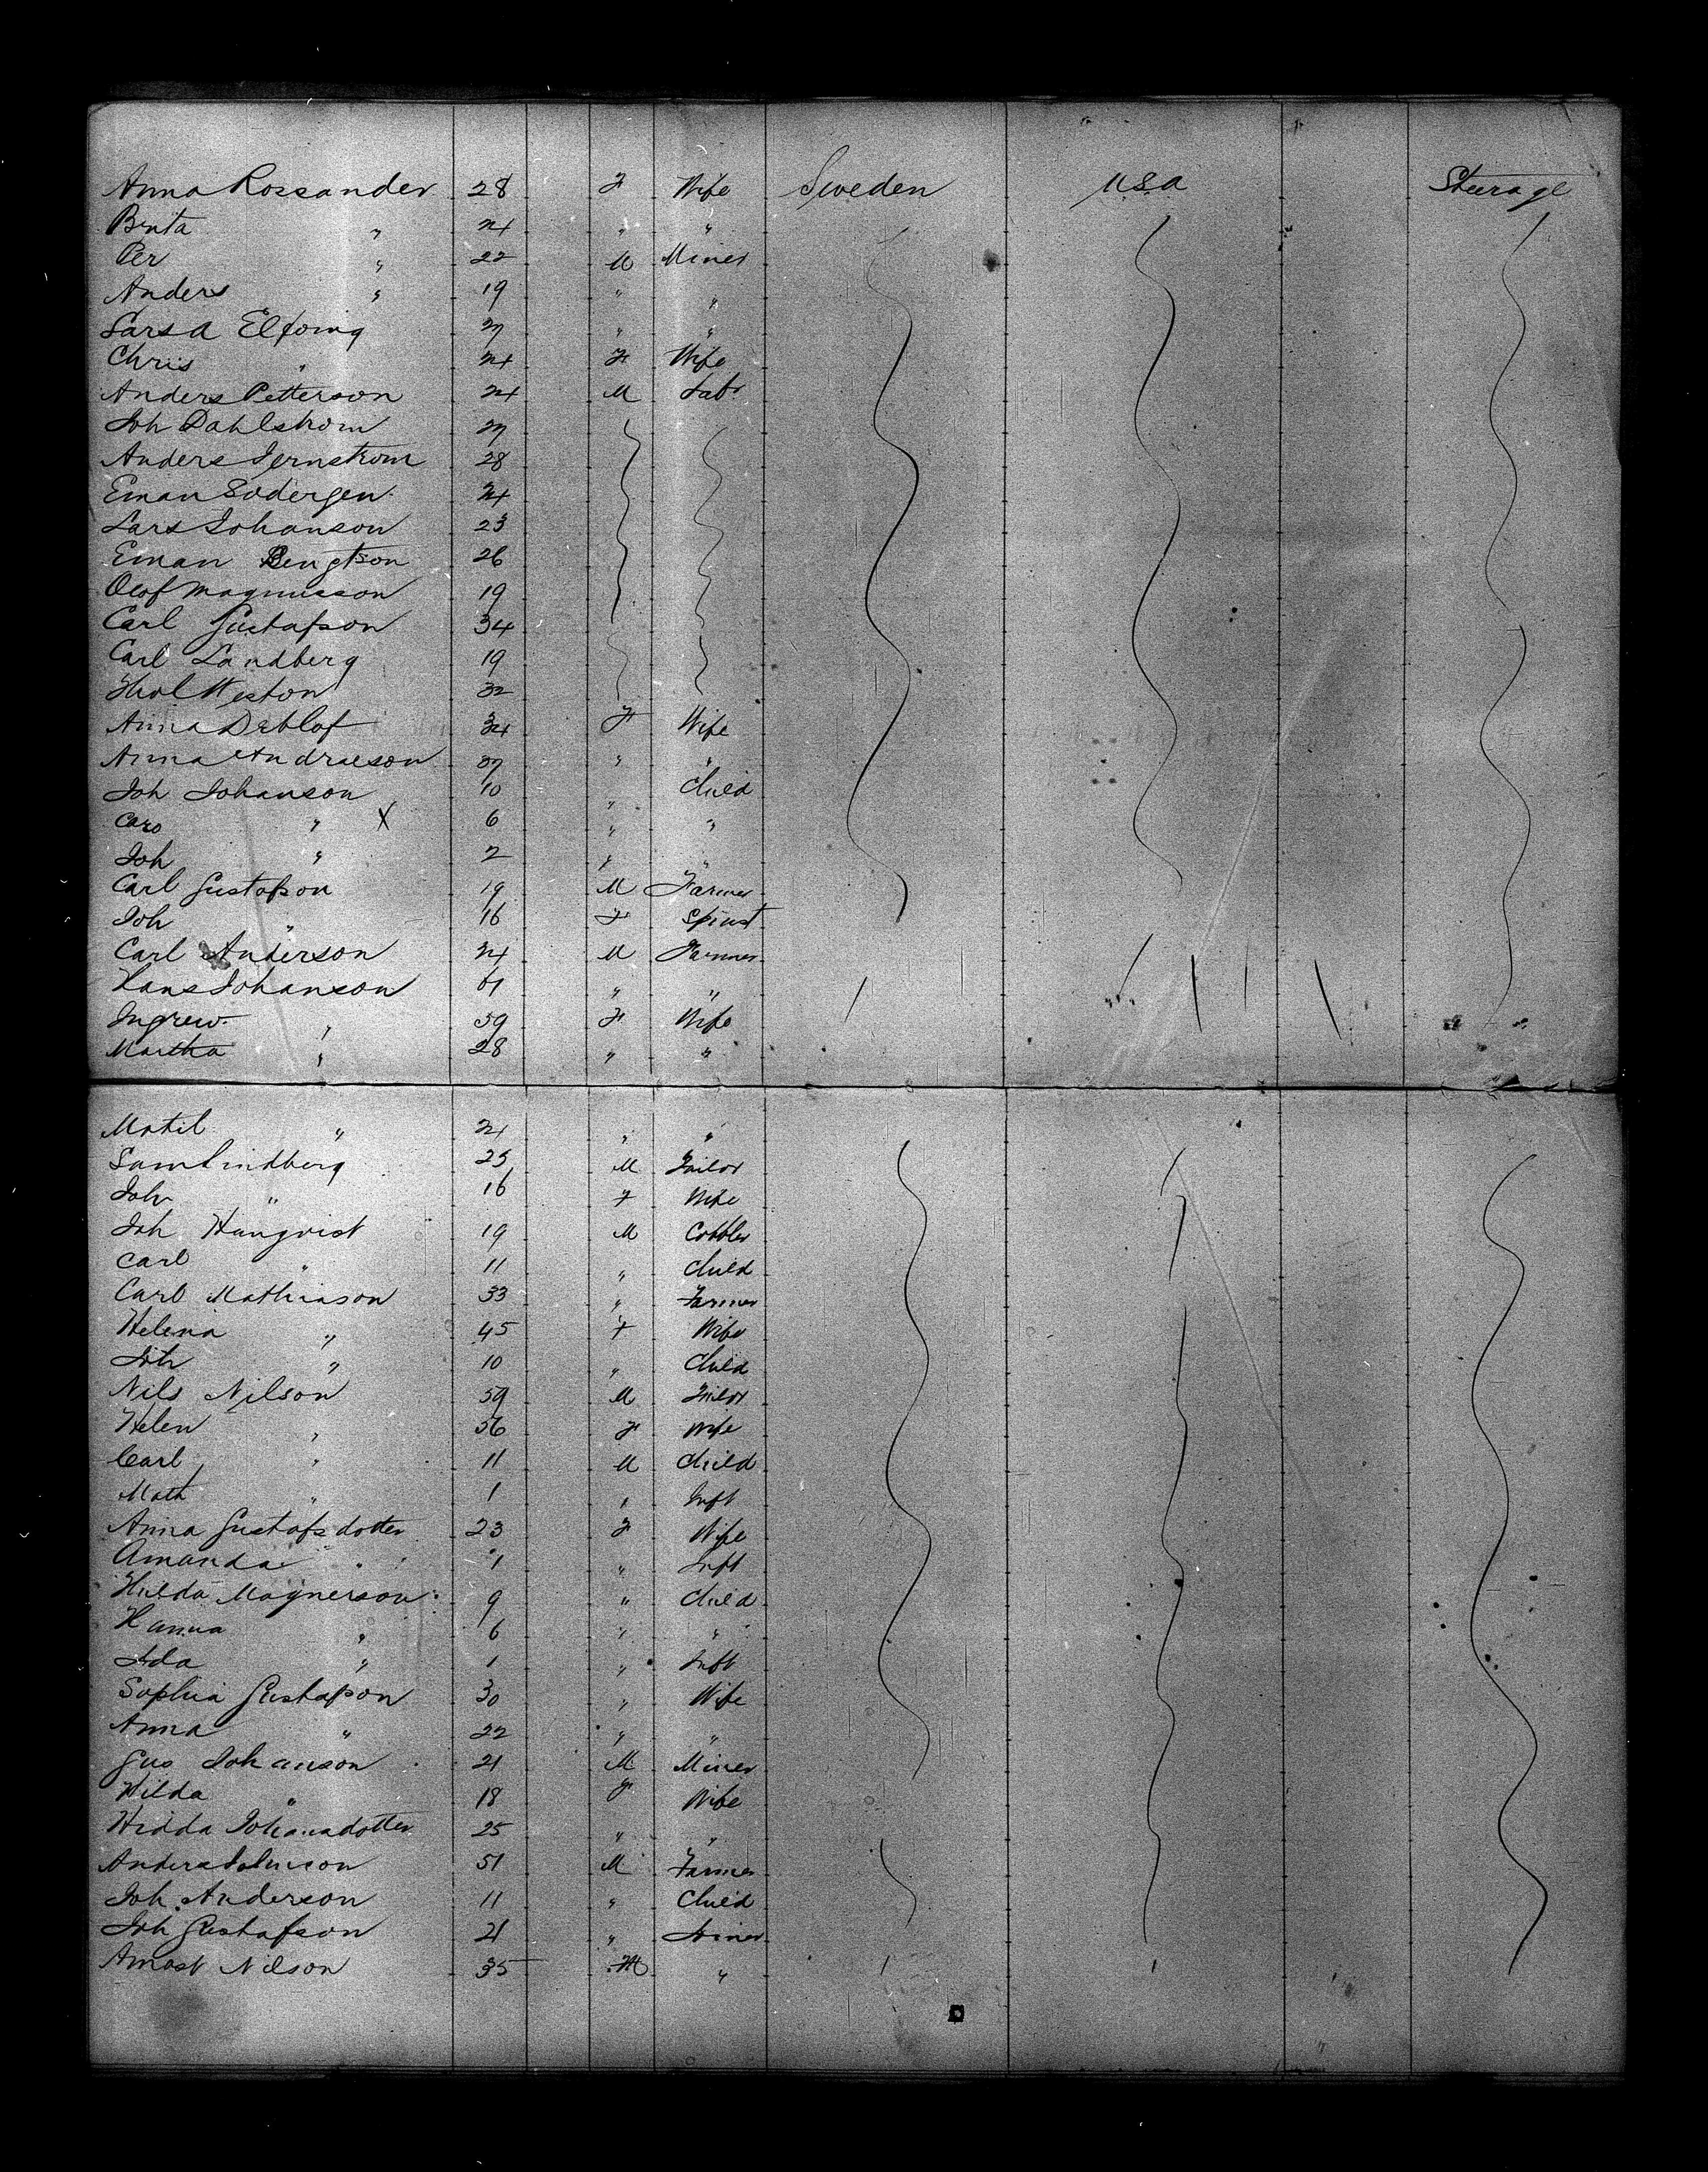 Anna Rossander 28 F Wife Sweden U.S.A Steerage
Brita " 24 " "
Per " 22 M Miner
Anders " 19 " "
Lars A Elfving 27 " "
Chris " 24 F Wife
Anders Petterson 24 M Labr
Joh Dahlstrom 27
Anders Jernstrom 28
Eman Sodergen 24
Lars Johanson 23
Eman Bengtson 26
Olof Magnusson 19
Carl Gustafson 34
Carl Landberg 19
Weston 32
Anna Detlof 34 F Wife
Anna Andraeson 37 " "
Joh Johanson 10 " Child
Caro " X 6 " "
Joh " 2 " "
Carl Gustafson 19 M Farmer
Joh " 16 F Spinst
Carl Anderson 24 M Farmer
Hans Johanson 61 " "
Ingrew " 59 F Wife
Martha " 28 " "
Matil " 21 " "
Sam Lindberg 25 M Tailor
Joh " 16 F Wife
Joh Hanqvist 19 M Cobbler
Carl " 11 " Child
Carl Mathiason 33 " Farmer
Helena " 45 F Wife
Joh " 10 " Child
Nils Nilson 59 M Tailor
Helen " 56 F Wife
Carl " 11 M Child
Math " 1 " Inft
Anna Gustafsdotter 23 F Wife
Amanda " 1 " Inft
Hulda Magnerson 9 " Child
Hanna " 6 " "
Ada " 1 " Inft
Sophia Gustafson 30 " Wife
Anna " 22 " "
Gus Johanson 21 M Miner
Hilda " 18 F Wife
Hidda Johansdotter 25 " "
Anders Johnson 51 M Farmer
Joh. Anderson 11 " Child
Joh Gustafson 21 " Miner
Nilson 35 M "